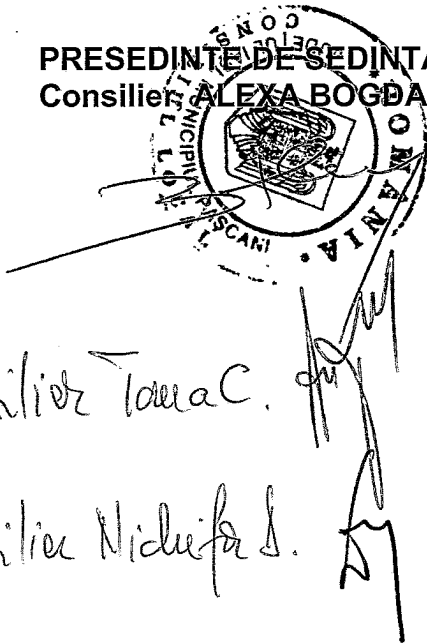 PRESEDINTE DE SEDINTA
Consilier ALEXA BOGDA
ROMÂNIA
CONSILIUL LOCAL
MUNICIPIUL PASCANI
ilier Toma C.
ilier Nichifor D.